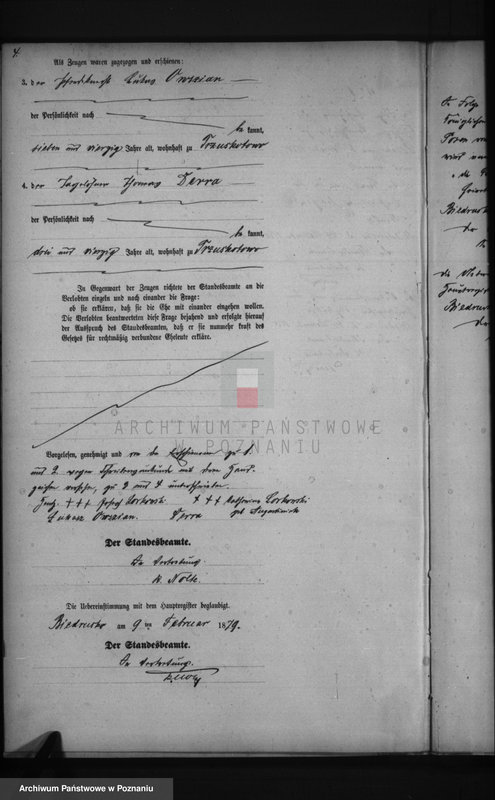 4.
Als Zeugen waren zugezogen und erschienen:
3. der Pferdeknecht Lukas Owszian
der Persönlichkeit nach
be kannt,
sieben und vierzig Jahre alt, wohnhaft zu Trzuskotowo
4. der Tagelöhner Thomas Derra
der Persönlichkeit nach
be kannt,
drei und vierzig Jahre alt, wohnhaft zu Trzuskotowo
In Gegenwart der Zeugen richtete der Standesbeamte an die
Verlobten einzeln und nach einander die Frage:
ob sie erklären, daß sie die Ehe mit einander eingehen wollen.
Die Verlobten beantworteten diese Frage bejahend und erfolgte hierauf
der Ausspruch des Standesbeamten, daß er sie nunmehr kraft des
Gesetzes für rechtmäßig verbundene Eheleute erkläre.
ARCHIWUM PAŃSTWOWE
W POZNANIU
Vorgelesen, genehmigt und von den Erschienenen zu 1.
und 2 wegen Schreibensunkunde mit dem Hand-
zeichen versehen, zu 3 und 4 unterschrieben.
+++ Josef +++ Katharina
Lukas Owszian. Derra geb
Der Standesbeamte.
In Vertretung
Nolte
Die Uebereinstimmung mit dem Hauptregister beglaubigt.
Biedrusko am 9 ten Februar 1879.
Der Standesbeamte.
In Vertretung.
In Folge
Königlichen
Posen
wird
die
Biedrusko
Der
die
Hauptregister
Biedrusko
Der
Archiwum Państwowe w Poznaniu